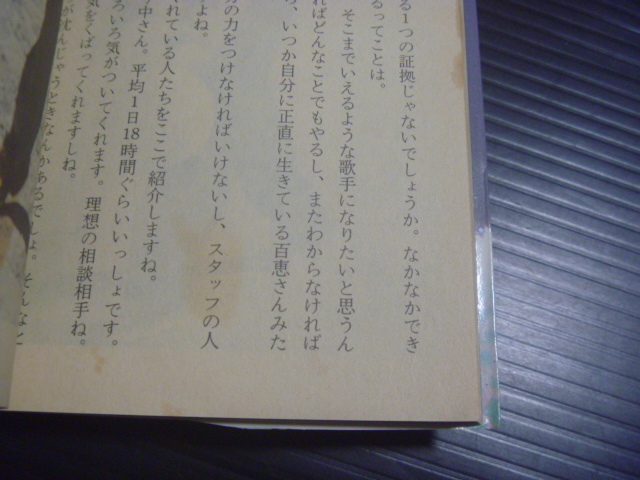 る1つの証拠じゃないでしょうか。なかなかでき
るってことは。
そこまでいえるような歌手になりたいと思うん
ればどんなことでもやるし、またわからなければ
ら、いつか自分に正直に生きている百恵さんみた
よね。
の力をつけなければいけないし、スタッフの人
くれている人たちをここで紹介しますね。
中さん。平均1日18時間ぐらいいっしょです。
ろいろ気がついてくれます。理想の相談相手ね。
気をくばってくれますしね。
が沈んじゃうときなんかあるでしょ。そんなと